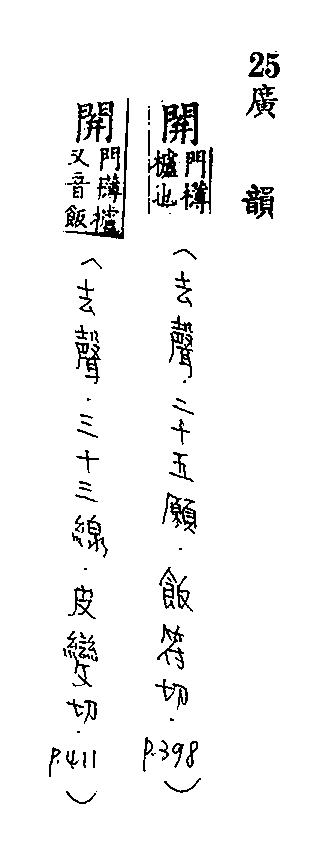 25
廣韻
閞 門欂櫨也 （去聲．二十五願．飯符切．p.398）
閞 門欂櫨又音飯 （去聲．三十三線．皮變切．p.411）